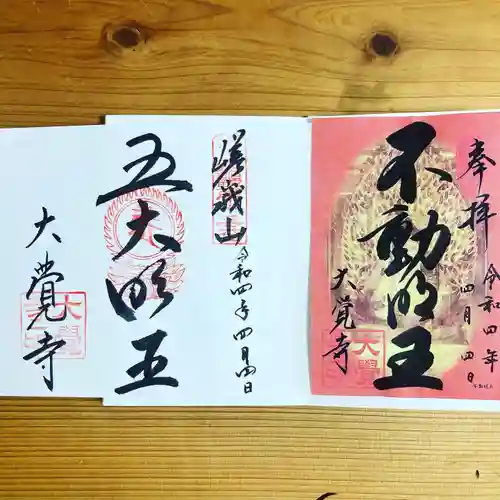 奉拝
令和四年
四月四日
不動明王
大覚寺
嵯峨山
令和四年四月四日
五大明王
大覚寺